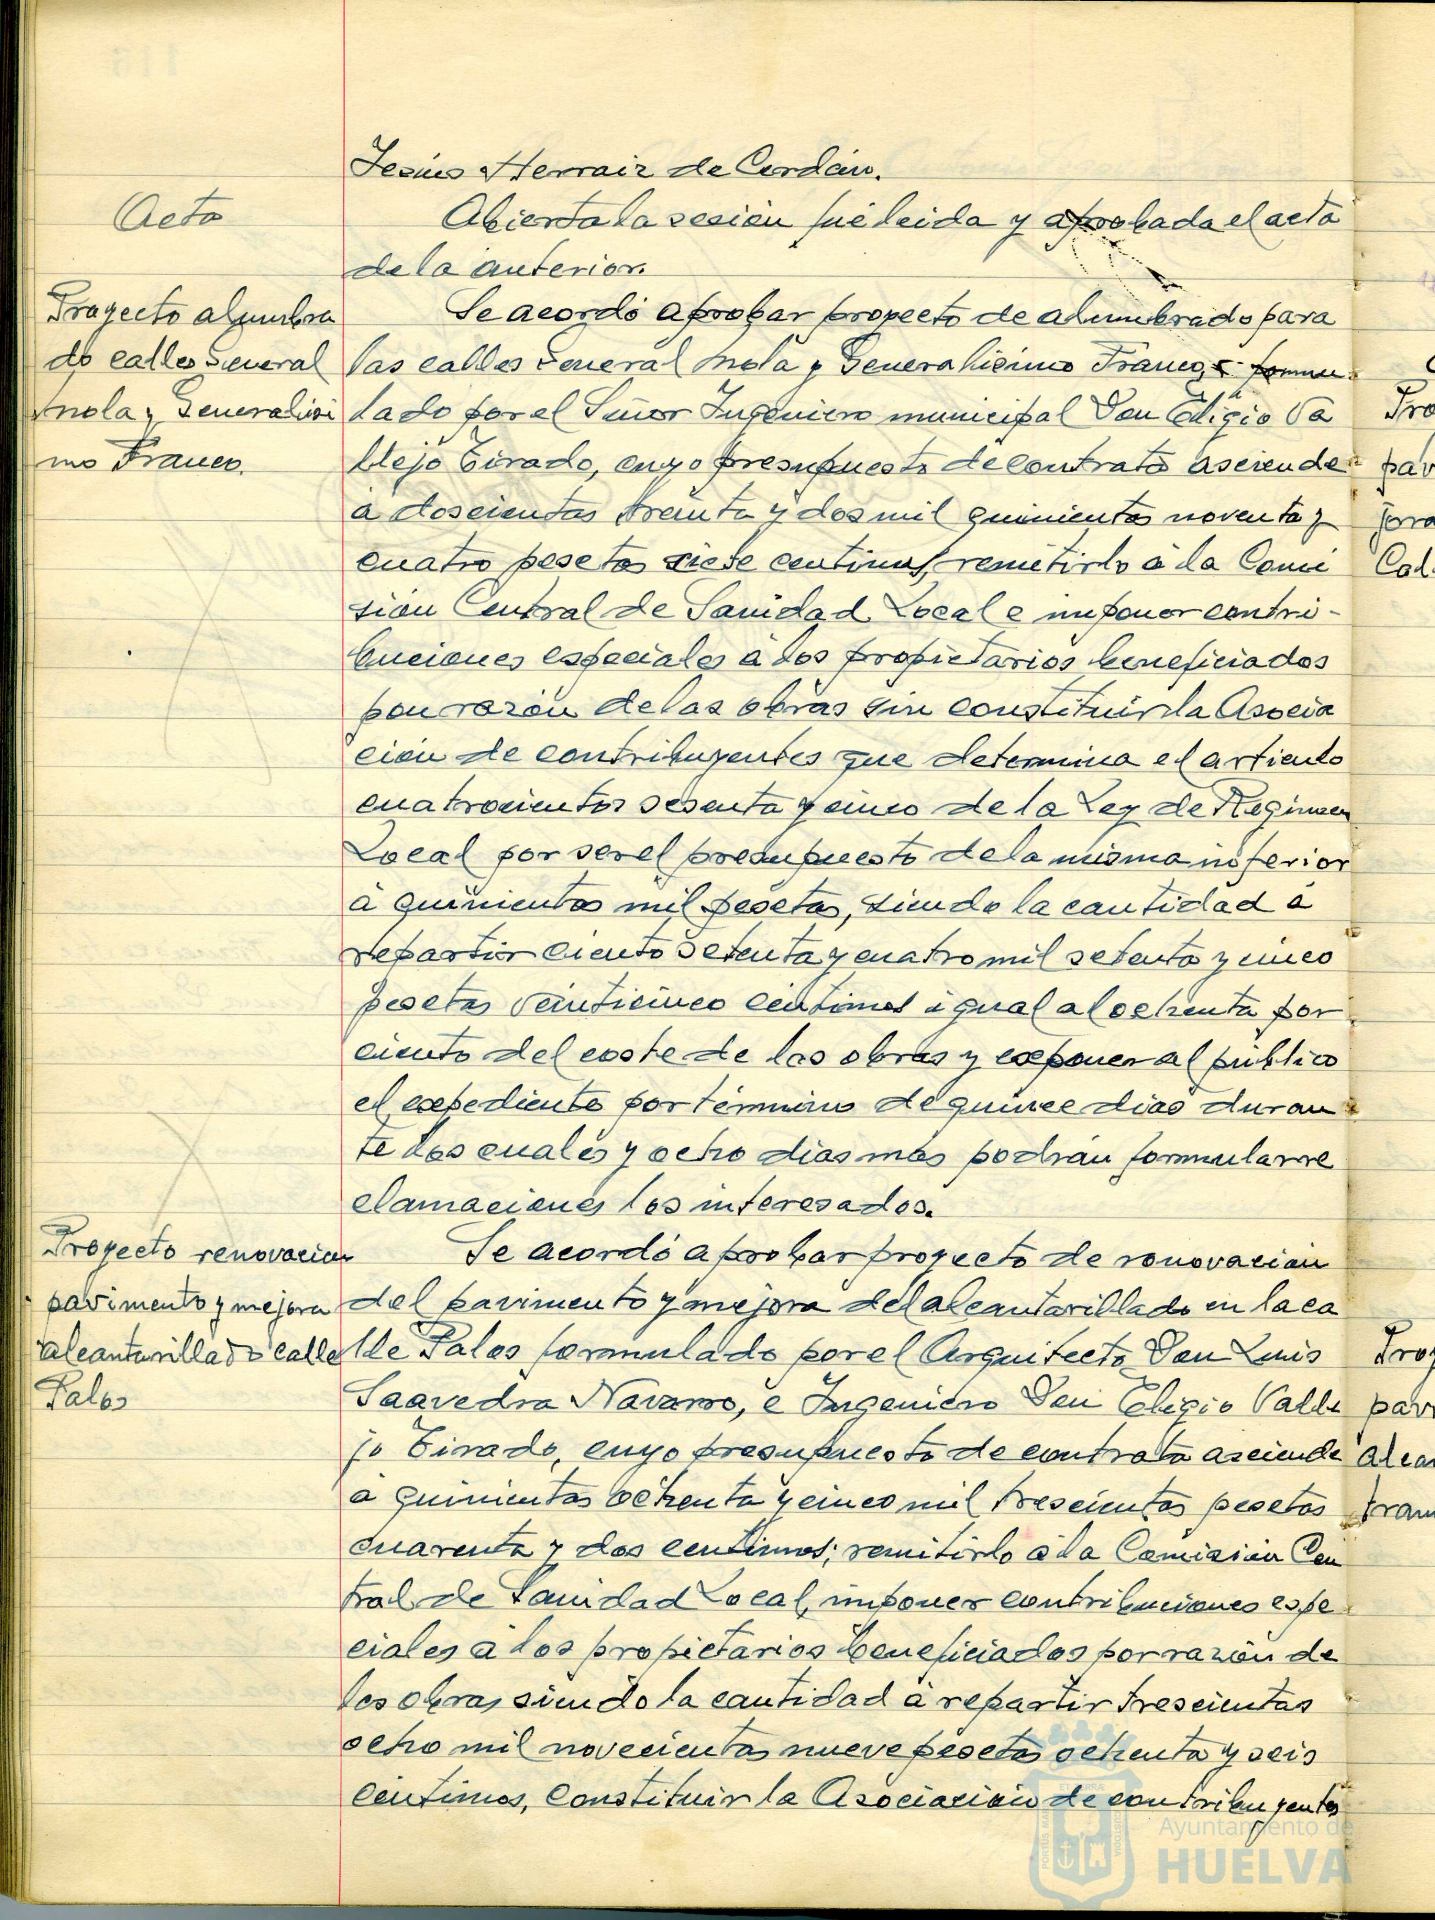 Jesús Herraiz de Cerdán.
Acta
Abierta la sesión fué leida y aprobada el acta
de la anterior.
Proyecto alumbra
do calles General
Mola y Generalísi
mo Franco.
Se acordó aprobar proyecto de alumbrado para
las calles General Mola y Generalísimo Franco, formu
lado por el Señor Ingeniero municipal Don Eligio Va
llejo Tirado, cuyo presupuesto de contrata asciende
á doscientas treinta y dos mil quinientas noventa y
cuatro pesetas siete centimos, remitirlo á la Comi
sión Central de Sanidad Local e imponer contri-
buciones especiales á los propietarios beneficiados
por razón de las obras sin constituir la Asocia
ción de contribuyentes que determina el articulo
cuatrocientos sesenta y cinco de la Ley de Regimen
Local por ser el presupuesto de la misma inferior
á quinientas mil pesetas, siendo la cantidad á
repartir ciento setenta y cuatro mil setenta y cinco
pesetas veinticinco centimos igual al ochenta por
ciento del coste de las obras y exponer al público
el expediente por término de quince dias duran
te los cuales y ocho dias mas podrán formular re
clamaciones los interesados.
Proyecto renovacion
pavimento y mejora
alcantarillado calle
Palos
Se acordó aprobar proyecto de renovación
del pavimento y mejora del alcantarillado en la ca
lle Palos formulado por el Arquitecto Don Luis
Saavedra Navarro, e Ingeniero Don Eligio Valle
jo Tirado, cuyo presupuesto de contrata asciende
á quinientas ochenta y cinco mil trescientas pesetas
cuarenta y dos centimos; remitirlo á la Comisión Cen
tral de Sanidad Local, imponer contribuciones espe
ciales á los propietarios beneficiados por razón de
las obras siendo la cantidad á repartir trescientas
ocho mil novecientas nueve pesetas ochenta y seis
centimos, constituir la Asociación de contribuyentes
Pro
pav
jora
Cal
Proy
pavi
alcan
tram
Ayuntamiento de
HUELVA